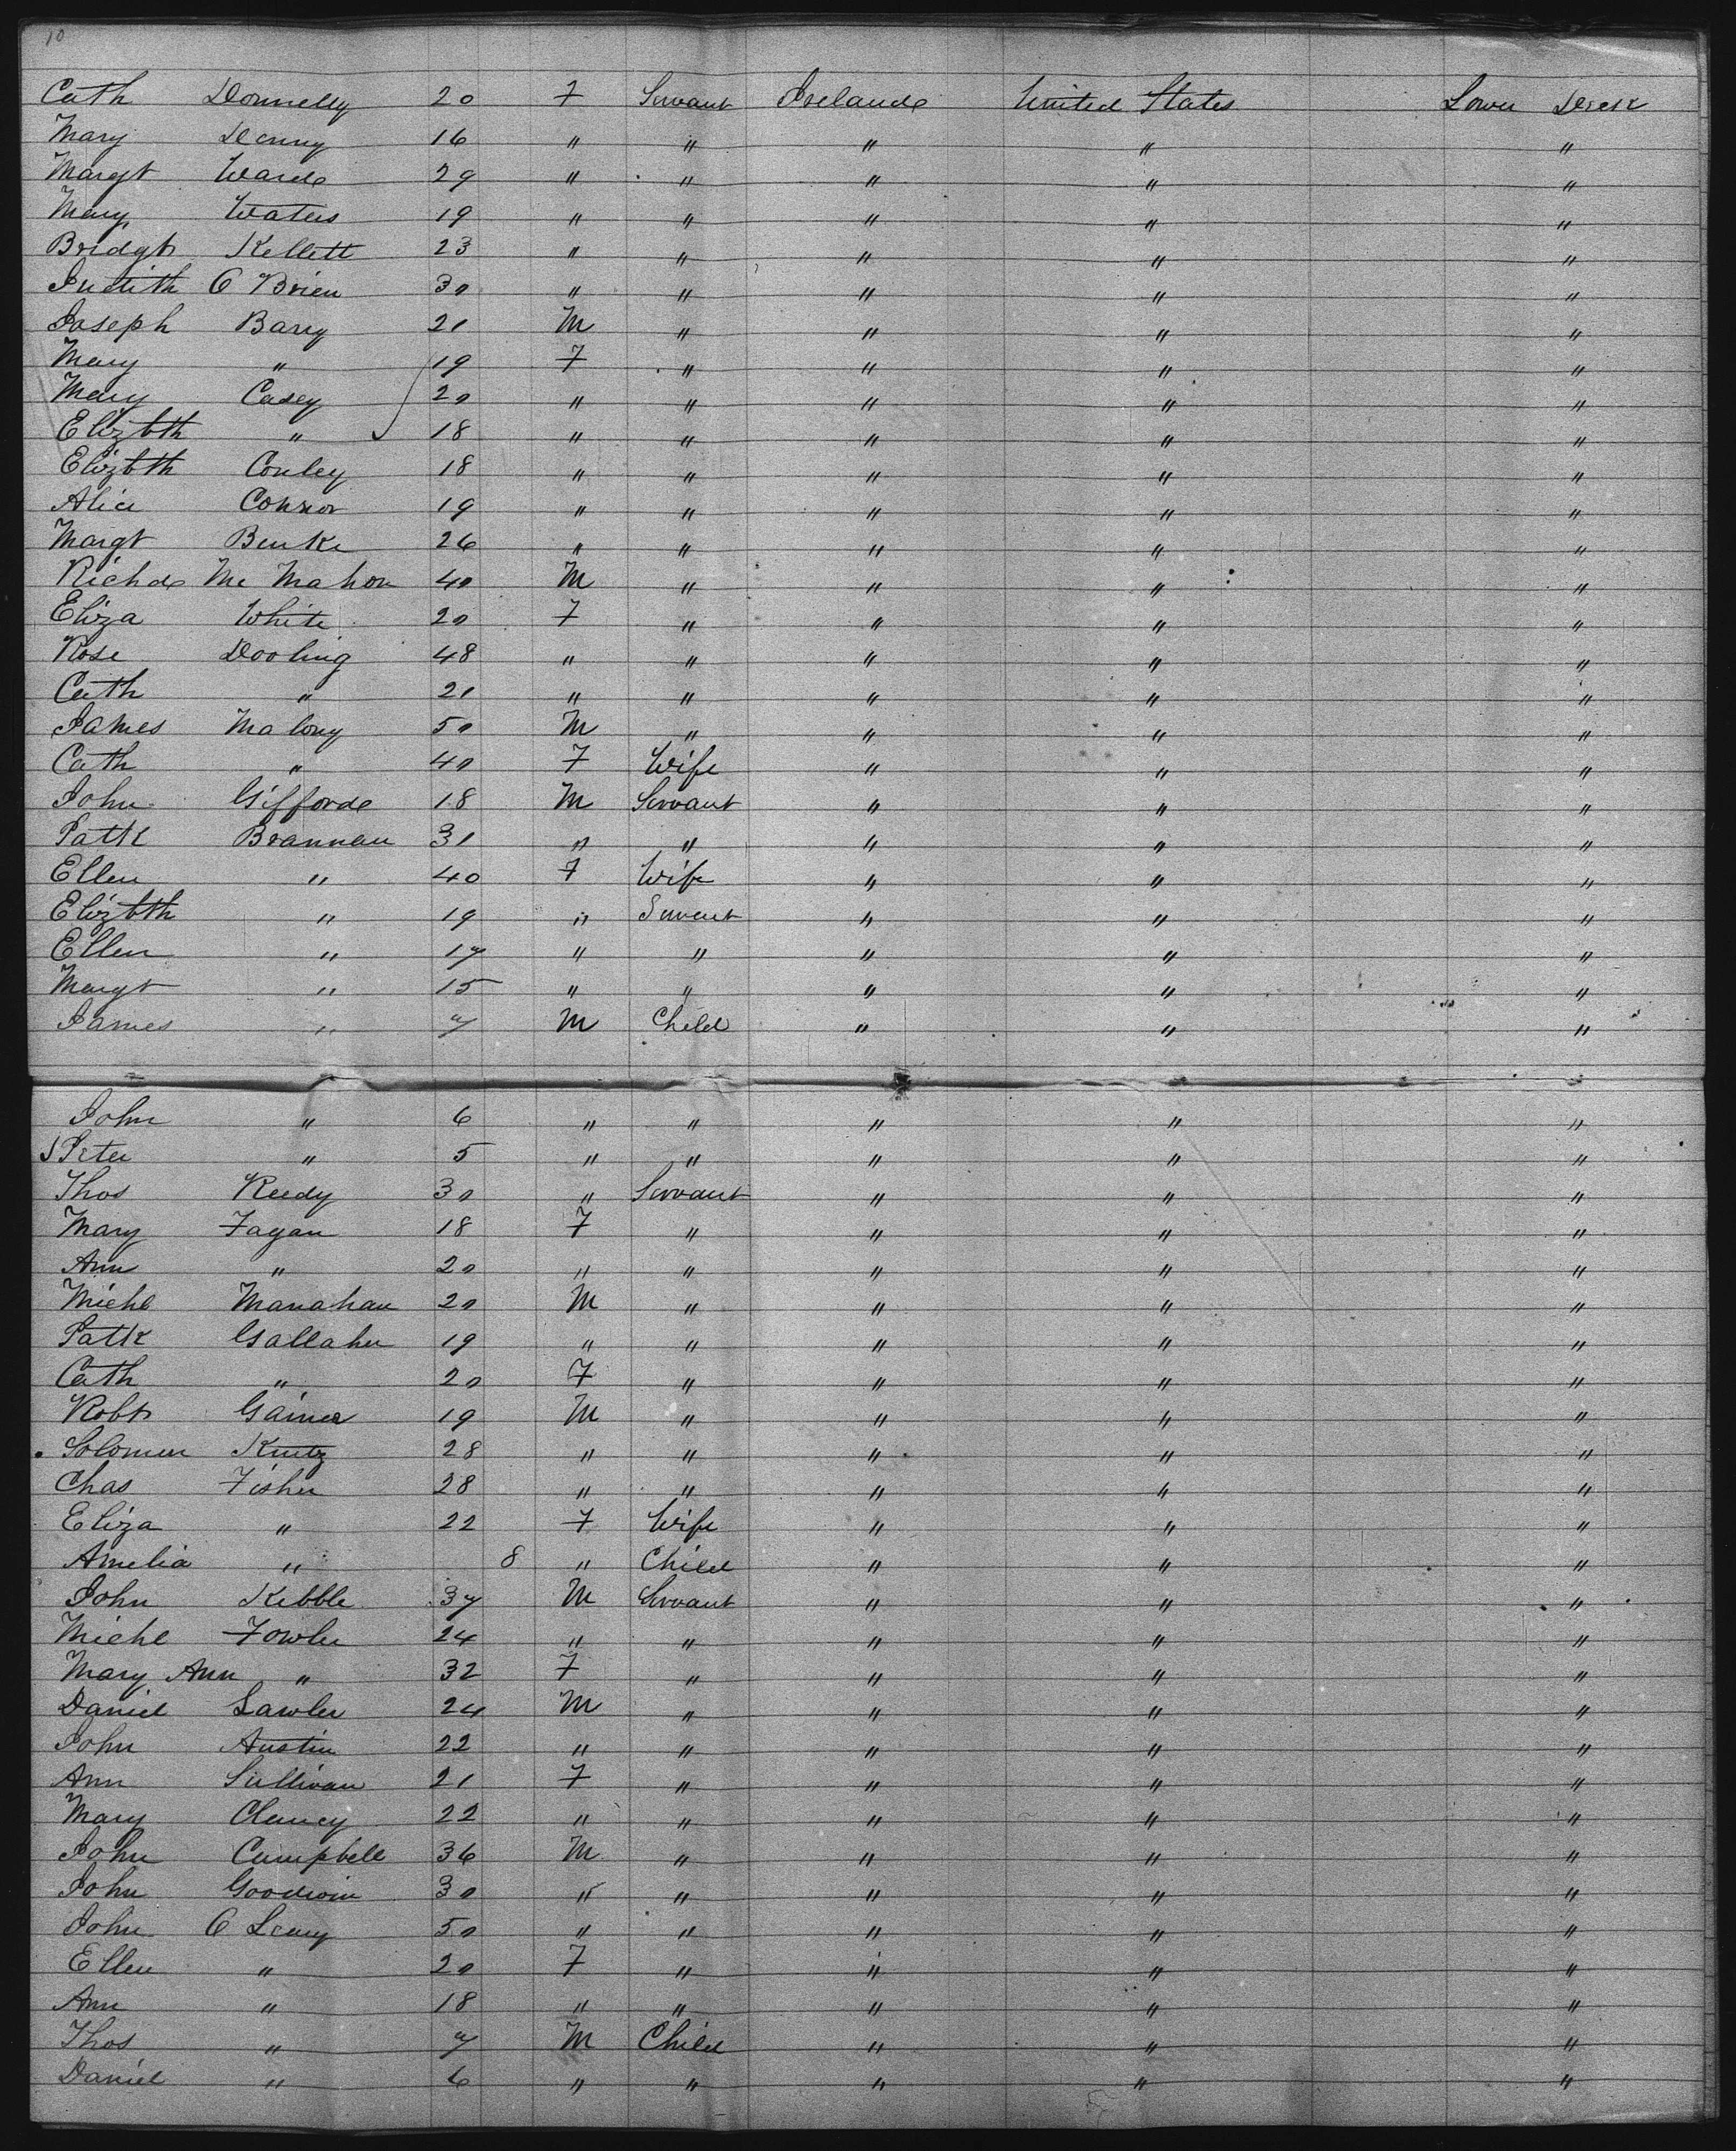 10
Cath Donnelly 20 F Servant Ireland United States Lower Deck
Mary Denny 16 " " " " "
Margt Ward 29 " " " " "
Mary Waters 19 " " " " "
Bridgt Kellett 23 " " " " "
Judith O Brien 30 " " " " "
Joseph Barry 21 M " " " "
Mary " 19 F " " " "
Mary Casey 20 " " " " "
Elizbth " 18 " " " " "
Elizbth Conley 18 " " " " "
Alice Connor 19 " " " " "
Margt Burke 26 " " " " "
Richd Mc Mahon 40 M " " " "
Eliza White 20 F " " " "
Rose Dooling 48 " " " " "
Cath " 21 " " " " "
James Malony 50 M " " " "
Cath " 40 F Wife " " "
John Gifford 18 M Servant " " "
Patk Brannan 31 " " " " "
Ellen " 40 F Wife " " "
Elizbth " 19 " Servant " " "
Ellen " 17 " " " " "
Margt " 15 " " " " "
James " 7 M Child " " "
John " 6 " " " " "
Peter " 5 " " " " "
Thos Reedy 30 " Servant " " "
Mary Fagan 18 F " " " "
Ann " 20 " " " " "
Michl Manahan 20 M " " " "
Patk Gallaher 19 " " " " "
Cath " 20 F " " " "
Robt Gainer 19 M " " " "
Solomon Kurtz 28 " " " " "
Chas Fisher 28 " " " " "
Eliza " 22 F Wife " " "
Amelia " 8 " Child " " "
John Kibble 37 M Servant " " "
Michl Fowler 24 " " " " "
Mary Ann " 32 F " " " "
Daniel Lawler 24 M " " " "
John Austin 22 " " " " "
Ann Sullivan 21 F " " " "
Mary Clancy 22 " " " " "
John Campbell 36 M " " " "
John Goodwin 30 " " " " "
John O Leary 50 " " " " "
Ellen " 20 F " " " "
Ann " 18 " " " " "
Thos " 7 M Child " " "
Daniel " 6 " " " " "